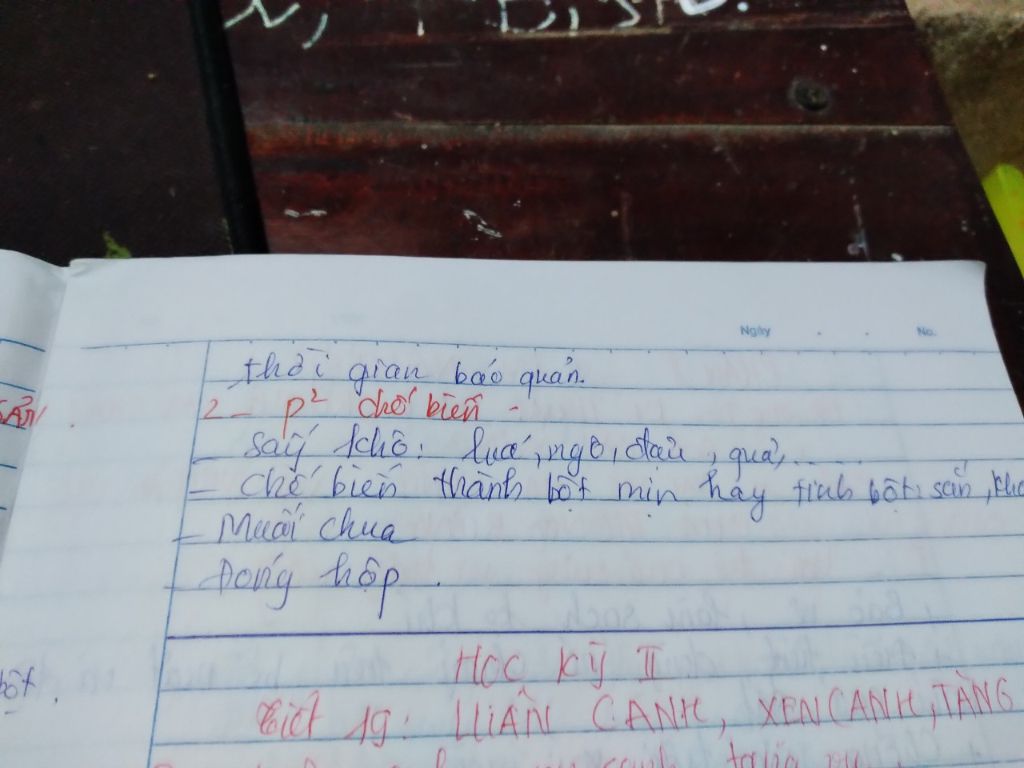 Ngày No.
thời gian bảo quản.
2 - p² chế biến -
- Sấy khô: lúa, ngô, đậu, quả,......
- Chế biến thành bột mịn hay tinh bột: sắn,
- Muối chua
- Đóng hộp.
HỌC KỲ II
Tiết 19: LUÂN CANH, XEN CANH, TĂNG